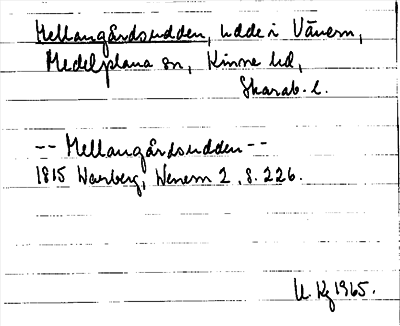 Mellangårdsudden, udde i Vänern,
Medelplana sn, Kinne hd,
Skarab. l.
-- Mellangårdsudden --
1815 Warberg, Wenern 2, s. 226.
1965.